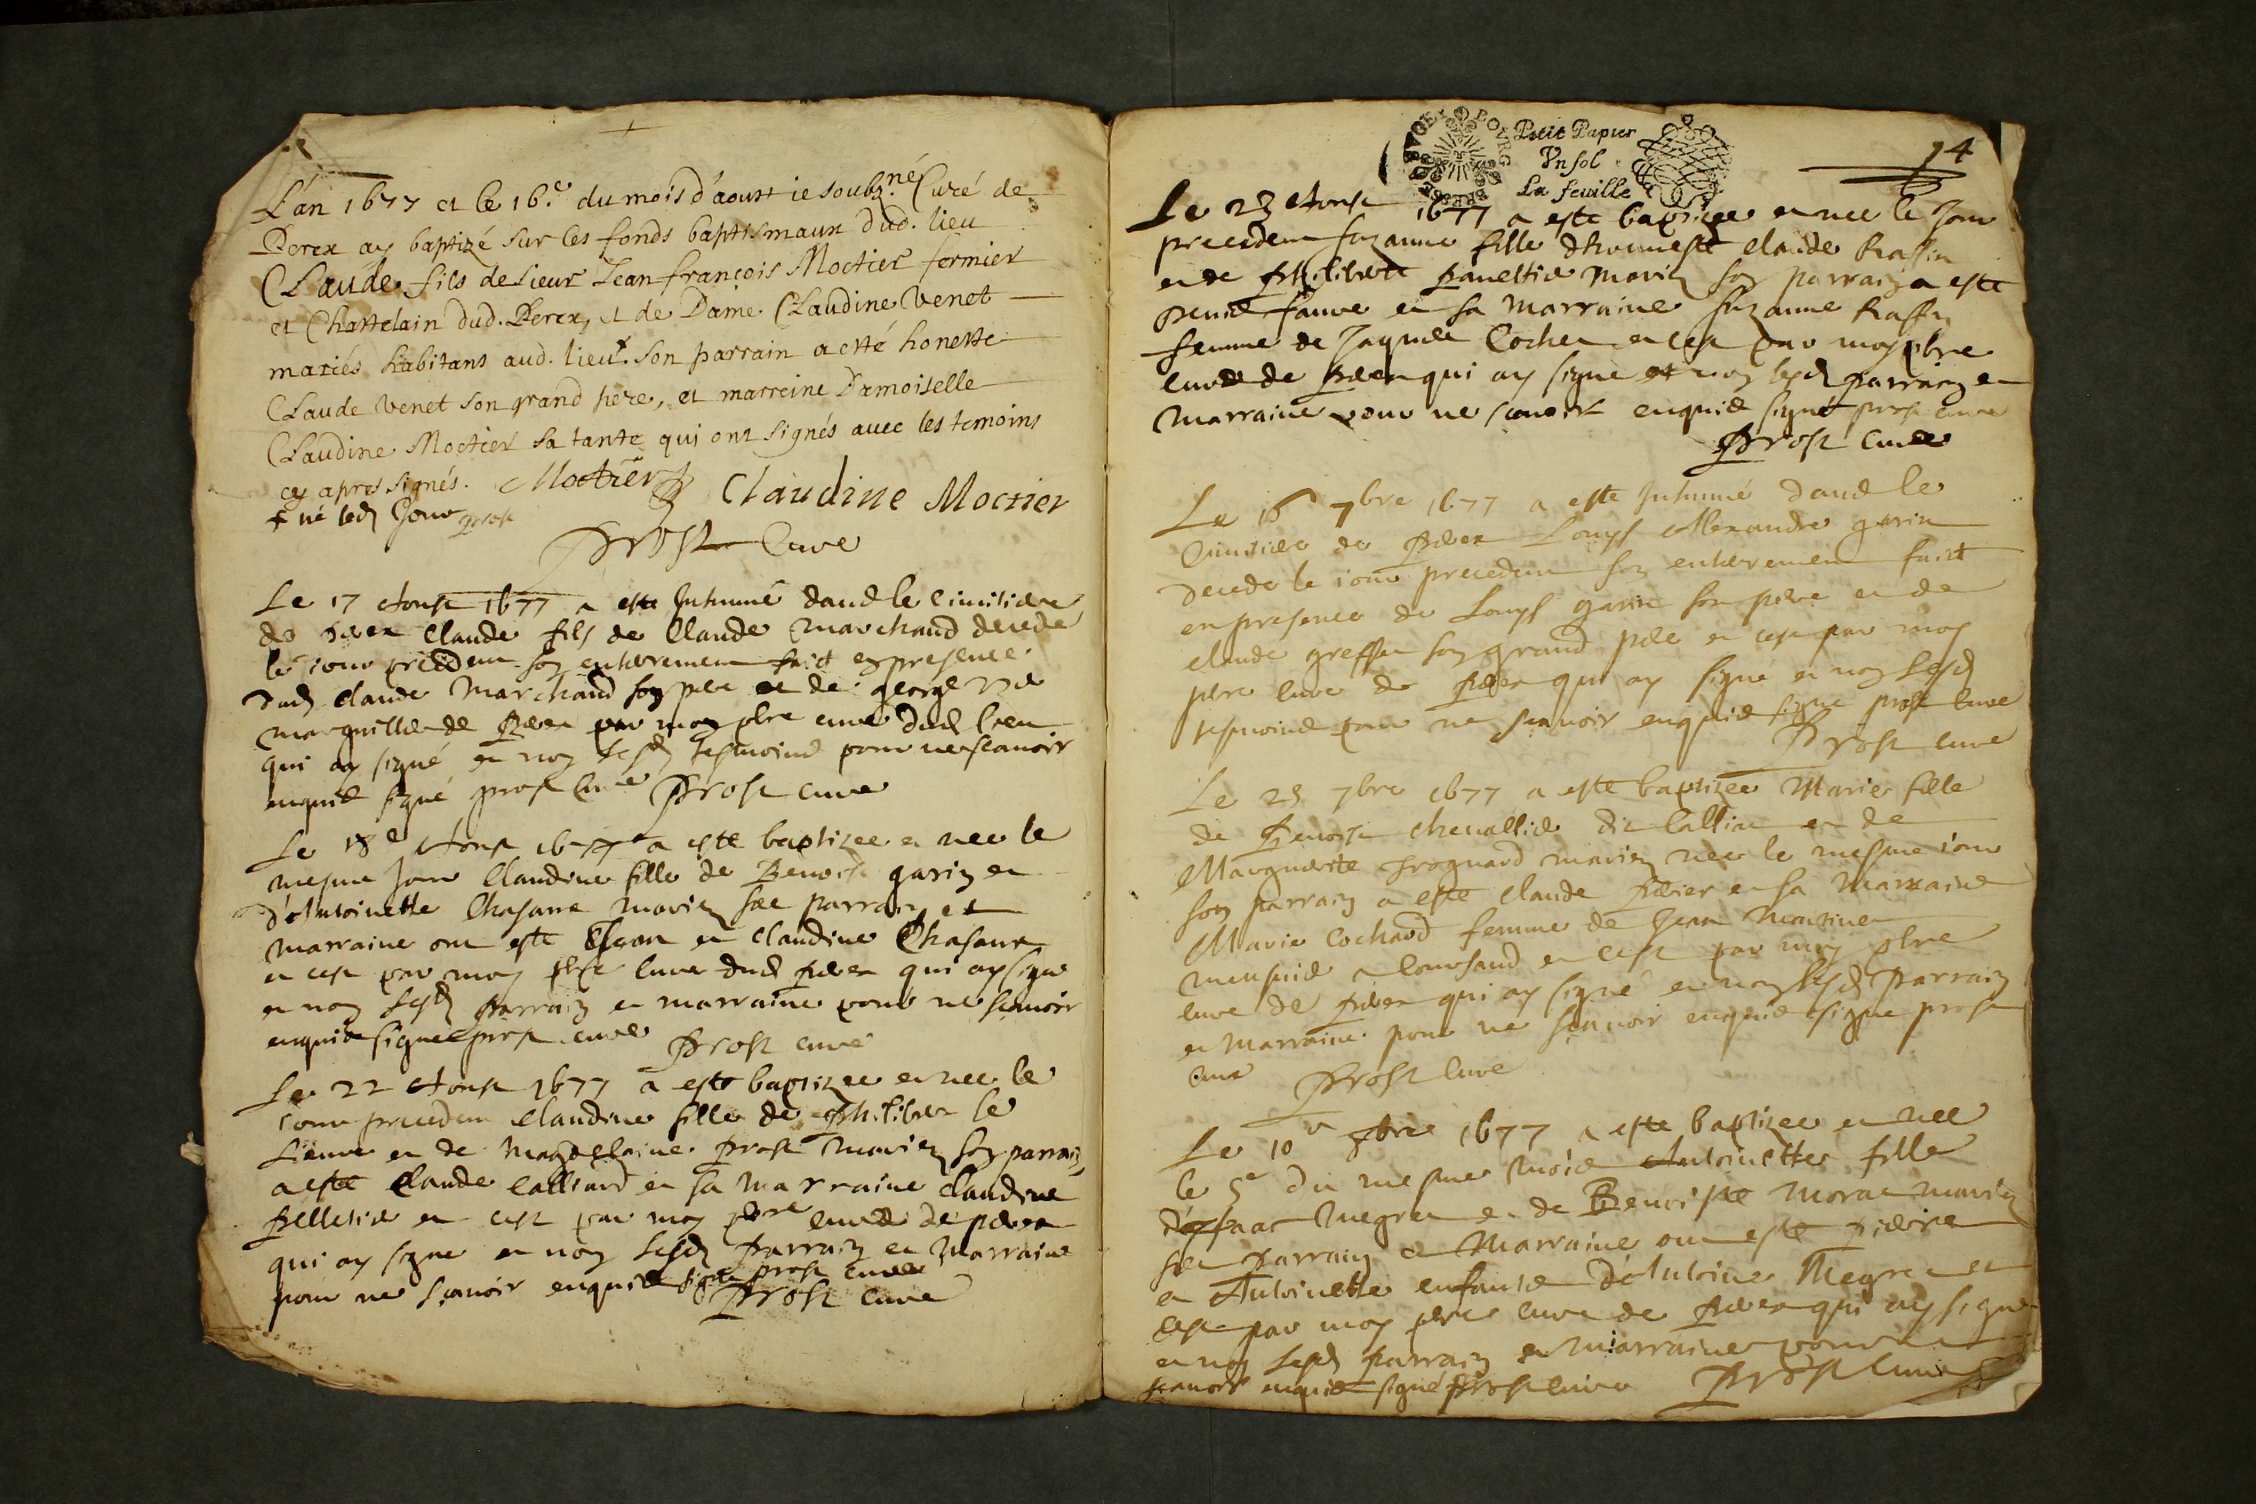 L'an 1677 et le 16.e du mois d'aoust ie soubz.né Curé de
Perex ay baptizé sur les fonds baptismaux dud. lieu
Claude fils de sieur Jean françois Moctier fermier
et Chastelain dud. Perex, et de Dame Claudine Venet
mariés habitans aud. lieu. son parrain a esté honeste
Claude Venet son grand pere, et marreine Damoiselle
Claudine Moctier sa tante qui ont signés avec les temoins
cy apres signés. Moctier Claudine Moctier
né led Jour prost
Prost Cure
Le 17 Aoust 1677 a este Inhumé dans le Cimitiere
de Perex Claude fils de Claude Marchand decede
le iour precedent son enterrement faict en presence
dud Claude Marchand son pere et de george
marguillier de Perex par moy pbre cure dud lieu
qui ay signé et non lesd tesmoins pour ne scavoir
enquis signé prost Curé Prost cure
Le 18e Aoust 1677 a este baptizee et nee le
mesme Jour Claudine fille de Benoist garin et
d'Antoinette Chasane mariez ses parrain et
marraine ont este et Claudine Chasane
et cest par moy pbre Cure dud Perex qui ay signe
et non lesd parrain et marraine pour ne scavoir
enquis signé prost cure Prost curé
Le 22 Aoust 1677 a este baptizee et nee le
iour precedent Claudine fille de philibert le
Lieure et de Magdelaine prost mariez son parrain
a este Claude Calliard et sa marraine Claudine
pelletier et cest par moy pbre curé de perex
qui ay signe et non lesd parrain et marraine
pour ne scavoir enquis signé prost cure
Prost cure
Petit Papier
Vn sol
La feuille
14
Le 23 Aoust 1677 a este baptizee et nee le Jour
precedent suzanne fille d'honneste Claude Raffin
et de philiberte mariez son parrain a este
Denis faure et sa marraine suzanne Raffin
femme de Jaques Cochet et cest par moy pbre
cure de perex qui ay signe et non lesd parrain et
marraine pour ne scavoir enquis signé prost cure
Prost cure
Le 16 7bre 1677 a este Inhumé dans le
Cimitiere de Perex Louys Allexandre garin
decede le iour precedent son enterrement faict
en presence de Louys garin son pere et de
Claude greffet son grand pere et cest par moy
pbre cure de Perex qui ay signé et non lesd
tesmoins pour ne scavoir enquis signe prost cure
Prost cure
Le 23 7bre 1677 a este baptizee Marie fille
de Benoist Chevallier dit et de
Marguerite mariez nee le mesme iour
son parrain a este Claude et sa Marraine
Marie Cochard femme de Jean
et cest par moy pbre
cure de Perex qui ay signé et non lesd Parrain
et Marraine pour ne scavoir enquis signe prost
cure Prost cure
Le 10e 8bre 1677 a este baptizee et nee
le 5e du mesme mois Antoinette fille
d'Isaac Megret et de Benoiste Morat mariez
ses parrain et Marraine ont este pierre
et Antoinette enfants d'Antoine Megret et
cest par moy pbre cure de Perex qui ay signe
et non lesd parrain et marraine pour ne
scavoir enquis signé prost cure Prost cure